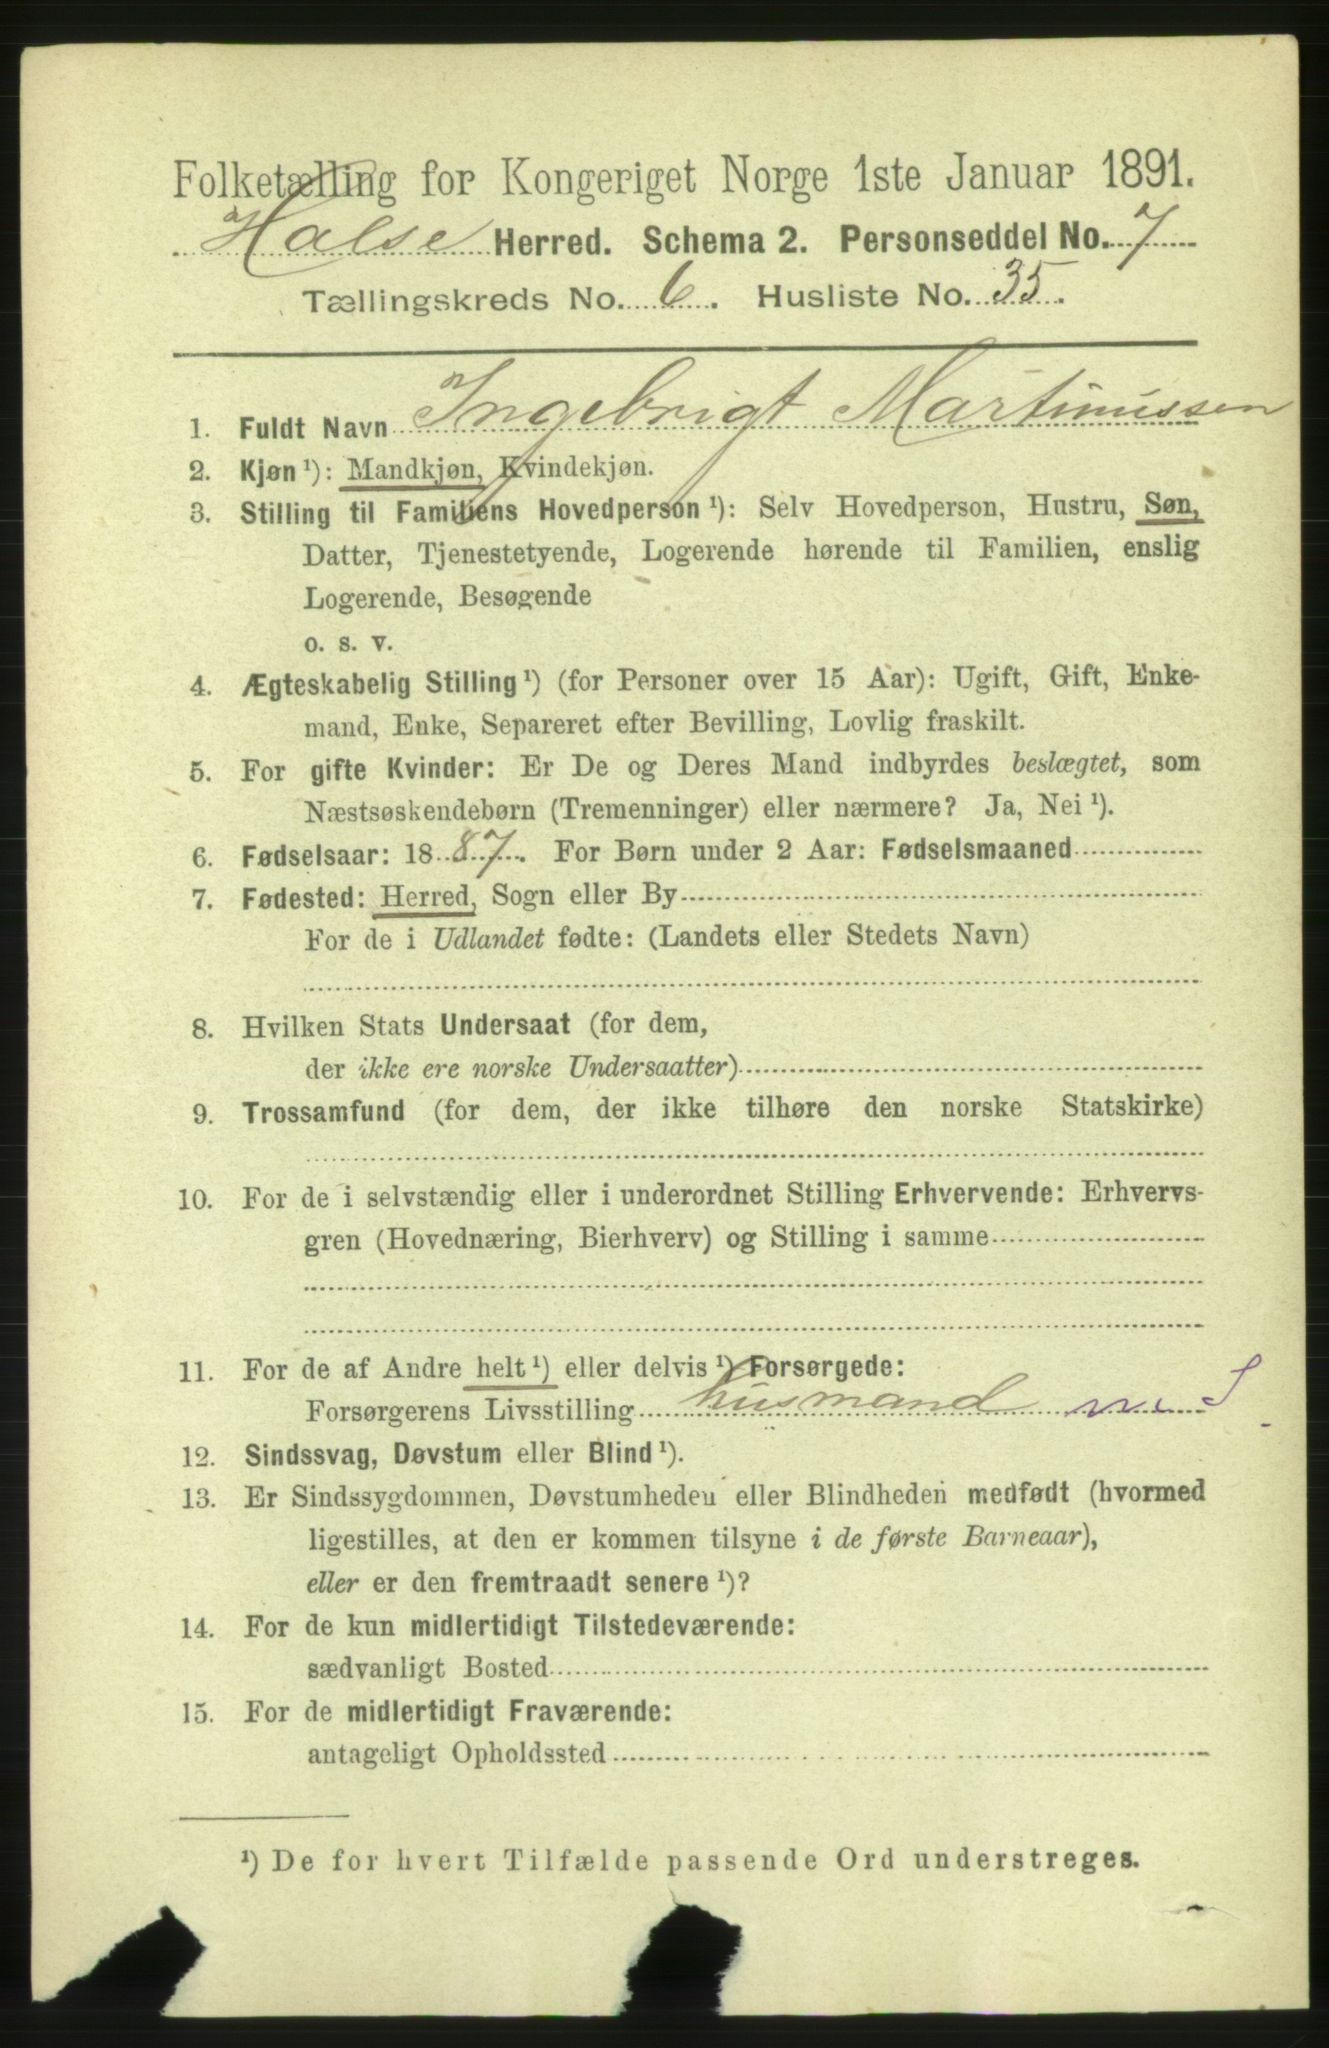 Folketælling for Kongeriget Norge 1ste Januar 1891.
Halse Herred. Schema 2. Personseddel No. 7
Tællingskreds No. 6. Husliste No. 35.
1. Fuldt Navn Ingebrigt Martinussen
2. Kjøn ¹): Mandkjøn, Kvindekjøn.
3. Stilling til Familiens Hovedperson ¹): Selv Hovedperson, Hustru, Søn,
Datter, Tjenestetyende, Logerende hørende til Familien, enslig
Logerende, Besøgende
o. s. v.
4. Ægteskabelig Stilling ¹) (for Personer over 15 Aar): Ugift, Gift, Enke-
mand, Enke, Separeret efter Bevilling, Lovlig fraskilt.
5. For gifte Kvinder: Er De og Deres Mand indbyrdes beslægtet, som
Næstsøskendebørn (Tremenninger) eller nærmere? Ja, Nei ¹).
6. Fødselsaar: 1887. For Børn under 2 Aar: Fødselsmaaned
7. Fødested: Herred, Sogn eller By
For de i Udlandet fødte: (Landets eller Stedets Navn)
8. Hvilken Stats Undersaat (for dem,
der ikke ere norske Undersaatter)
9. Trossamfund (for dem, der ikke tilhøre den norske Statskirke)
10. For de i selvstændig eller i underordnet Stilling Erhvervende: Erhvervs-
gren (Hovednæring, Bierhverv) og Stilling i samme
11. For de af Andre helt ¹) eller delvis ¹) Forsørgede:
Forsørgerens Livsstilling husmand m. S
12. Sindssvag, Døvstum eller Blind ¹).
13. Er Sindssygdommen, Døvstumheden eller Blindheden medfødt (hvormed
ligestilles, at den er kommen tilsyne i de første Barneaar),
eller er den fremtraadt senere ¹)?
14. For de kun midlertidigt Tilstedeværende:
sædvanligt Bosted
15. For de midlertidigt Fraværende:
antageligt Opholdssted
¹) De for hvert Tilfælde passende Ord understreges.